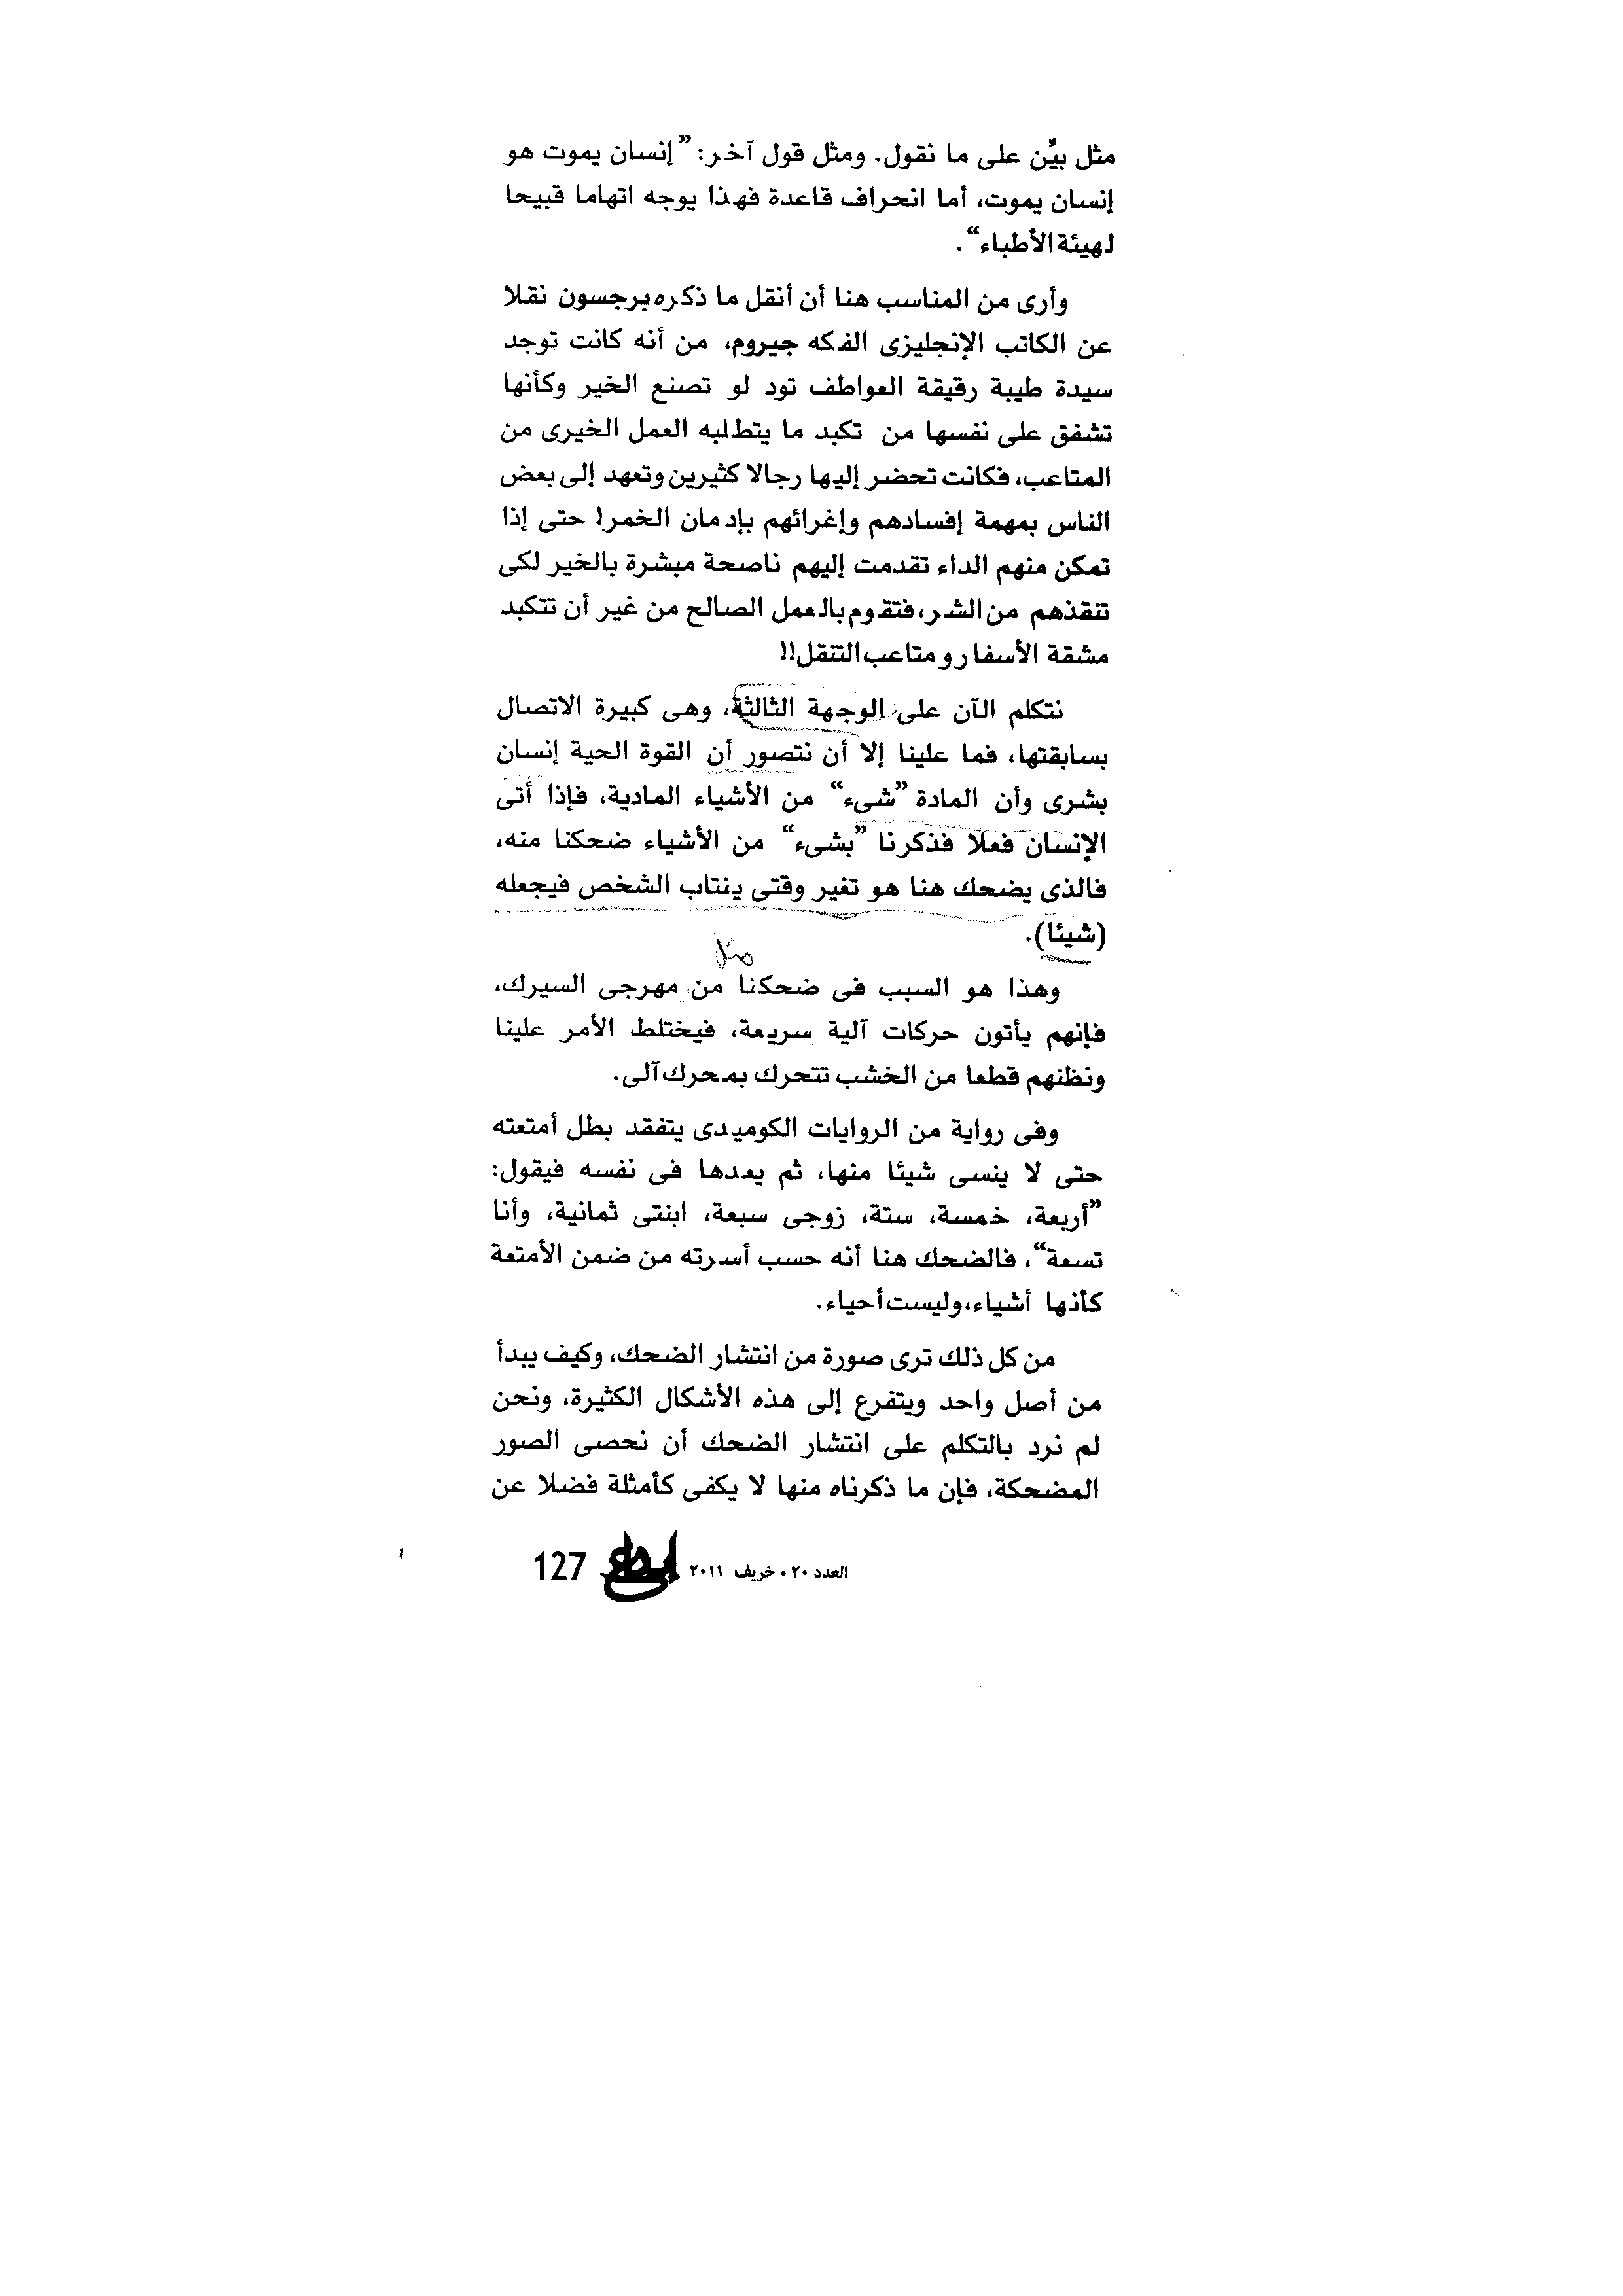 مثل بيِّن على ما نقول. ومثل قول آخر: "إنسان يموت هو
إنسان يموت، أما انحراف قاعدة فهذا يوجه اتهاما قبيحا
لهيئة الأطباء".
وأرى من المناسب هنا أن أنقل ما ذكره برجسون نقلا
عن الكاتب الإنجليزى الفكه جيروم، من أنه كانت توجد
سيدة طيبة رقيقة العواطف تود لو تصنع الخير وكأنها
تشفق على نفسها من تكبد ما يتطلبه العمل الخيرى من
المتاعب، فكانت تحضر إليها رجالا كثيرين وتعهد إلى بعض
الناس بمهمة إفسادهم وإغرائهم بإدمان الخمر! حتى إذا
تمكن منهم الداء تقدمت إليهم ناصحة مبشرة بالخير لكى
تنقذهم من الشر، فتقوم بالعمل الصالح من غير أن تتكبد
مشقة الأسفار ومتاعب التنقل!!
نتكلم الآن على الوجهة الثالثة، وهى كبيرة الاتصال
بسابقتها، فما علينا إلا أن نتصور أن القوة الحية إنسان
بشرى وأن المادة "شىء" من الأشياء المادية، فإذا أتى
الإنسان فعلا فذكرنا "بشىء" من الأشياء ضحكنا منه،
فالذى يضحك هنا هو تغير وقتى ينتاب الشخص فيجعله
(شيئا).
مثل
وهذا هو السبب فى ضحكنا من مهرجى السيرك،
فإنهم يأتون حركات آلية سريعة، فيختلط الأمر علينا
ونظنهم قطعا من الخشب تتحرك بمحرك آلى.
وفى رواية من الروايات الكوميدى يتفقد بطل أمتعته
حتى لا ينسى شيئا منها، ثم يعدها فى نفسه فيقول:
"أربعة، خمسة، ستة، زوجى سبعة، ابنتى ثمانية، وأنا
تسعة"، فالضحك هنا أنه حسب أسرته من ضمن الأمتعة
كأنها أشياء، وليست أحياء.
من كل ذلك ترى صورة من انتشار الضحك، وكيف يبدأ
من أصل واحد ويتفرع إلى هذه الأشكال الكثيرة، ونحن
لم نرد بالتكلم على انتشار الضحك أن نحصى الصور
المضحكة، فإن ما ذكرناه منها لا يكفى كأمثلة فضلا عن
العدد ٢٠ • خريف ٢٠١١ إبداع 127